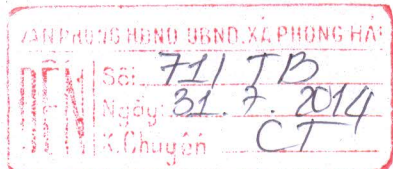 VĂN PHÒNG HĐND UBND XÃ PHONG HẢI
ĐẾN
Số: 711 TB
Ngày: 31.7.2014
K.Chuyển CT